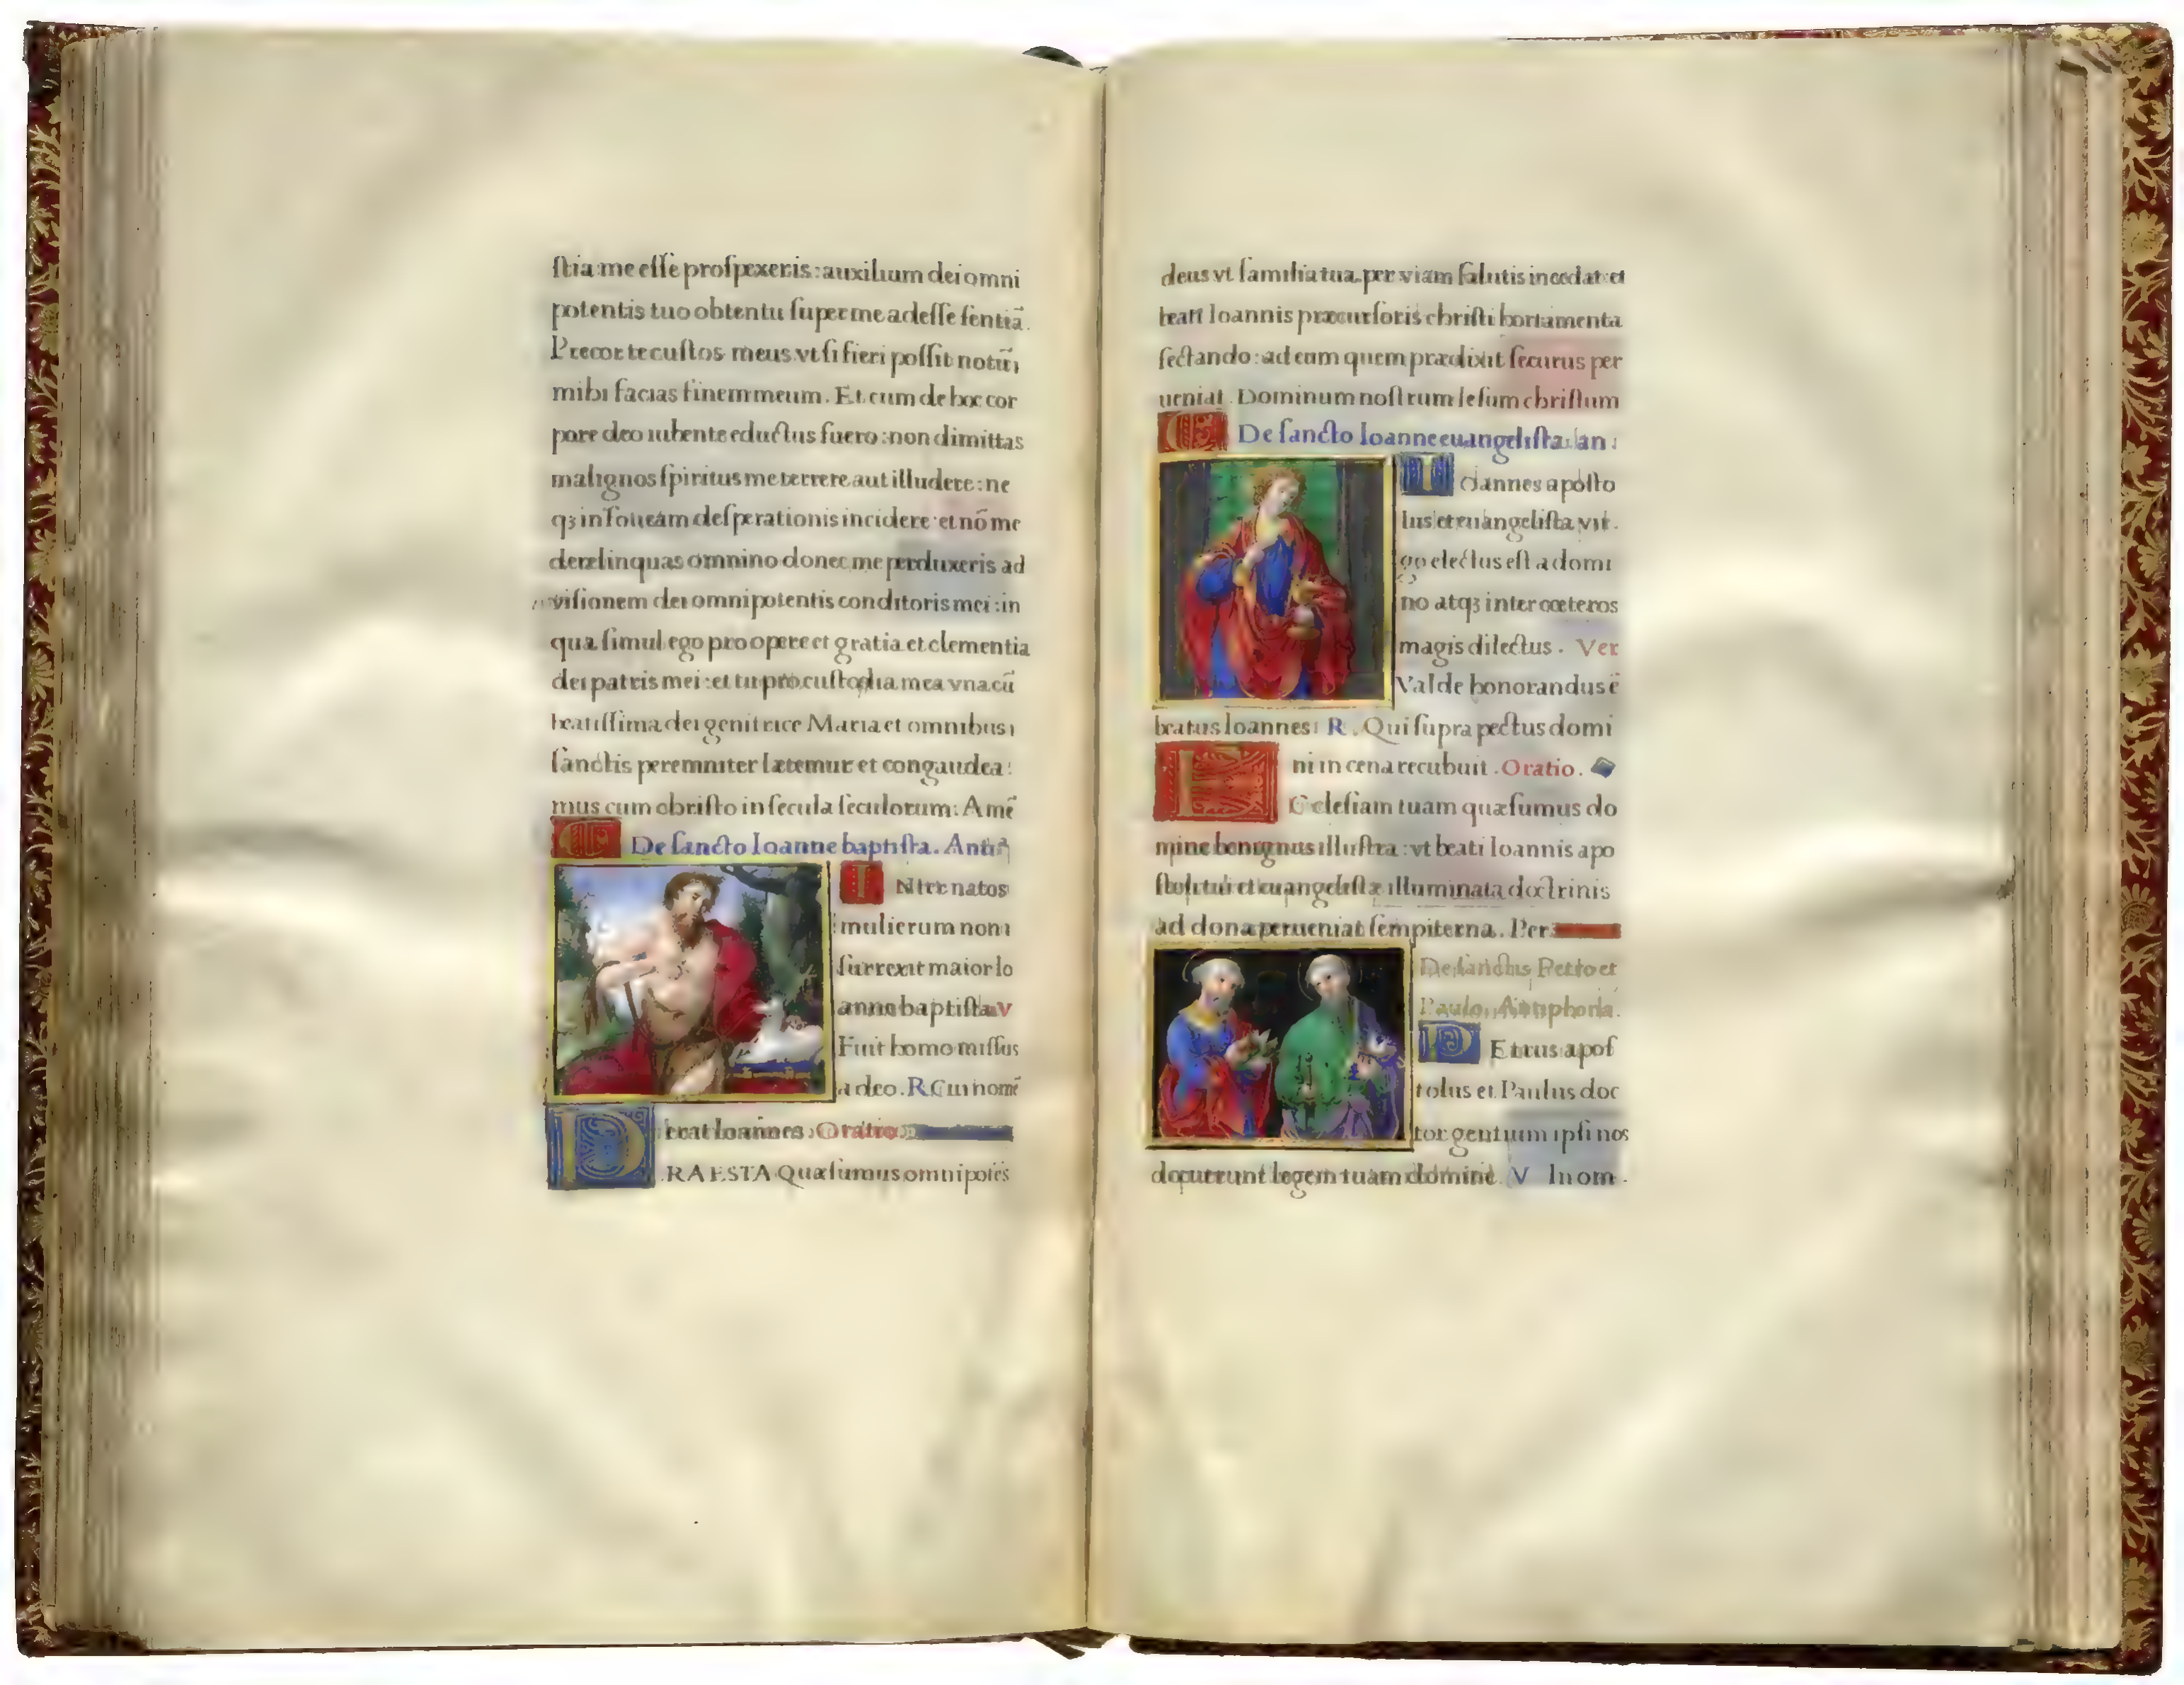 ſtia me eſſe proſpexeris : auxilium dei omni
potentis tuo obtentu ſuper me adeſſe ſentiā.
Precor te cuſtos meus vt ſi fieri poſſit notū
mihi facias finem meum. Et cum de hoc cor
pore deo iubente eductus fuero : non dimittas
malignos ſpiritus me terrere aut illudere : ne
qꝫ in foueam deſperationis incidere : et nō me
derelinquas omnino donec me perduxeris ad
viſionem dei omnipotentis conditoris mei : in
qua ſimul ego pro opere et gratia et clementia
dei patris mei : et tu pro cuſtodia mea vna cū
beatiſſima dei genitrice Maria et omnibus
ſanctis peremniter lætemur et congaudea
mus cum chriſto in ſecula ſeculorum : Amē
De ſancto Ioanne baptiſta. Antiᵃ
INter natos
mulierum non
ſurrexit maior Io
anne baptiſta V
Fuit homo miſſus
a deo. R Cui nomē
erat Ioannes. Oratio.
PRAESTA Quæſumus omnipotēs
deus vt familia tua per viam ſalutis incedat et
beati Ioannis præcurſoris chriſti hortamenta
ſectando : ad eum quem prædixit ſecurus per
ueniat. Dominum noſtrum Ieſum chriſtum
De ſancto Ioanne euangeliſta. an :
Ioannes apoſto
lus et euangeliſta vir.
go electus eſt a domi
no atqꝫ inter cœteros
magis dilectus. Ver
Valde honorandus ē
beatus Ioannes : R. Qui ſupra pectus domi
ni in cena recubuit. Oratio.
ECcleſiam tuam quæſumus do
mine benignus illuſtra : vt beati Ioannis apo
ſtoli tui et euangeliſtæ illuminata doctrinis
ad dona perueniat ſempiterna. Per
De ſanctis Petro et
Paulo. Antiphona.
PEtrus apoſ
tolus et Paulus doc
tor gentium ipſi nos
docuerunt legem tuam domine. V In om.